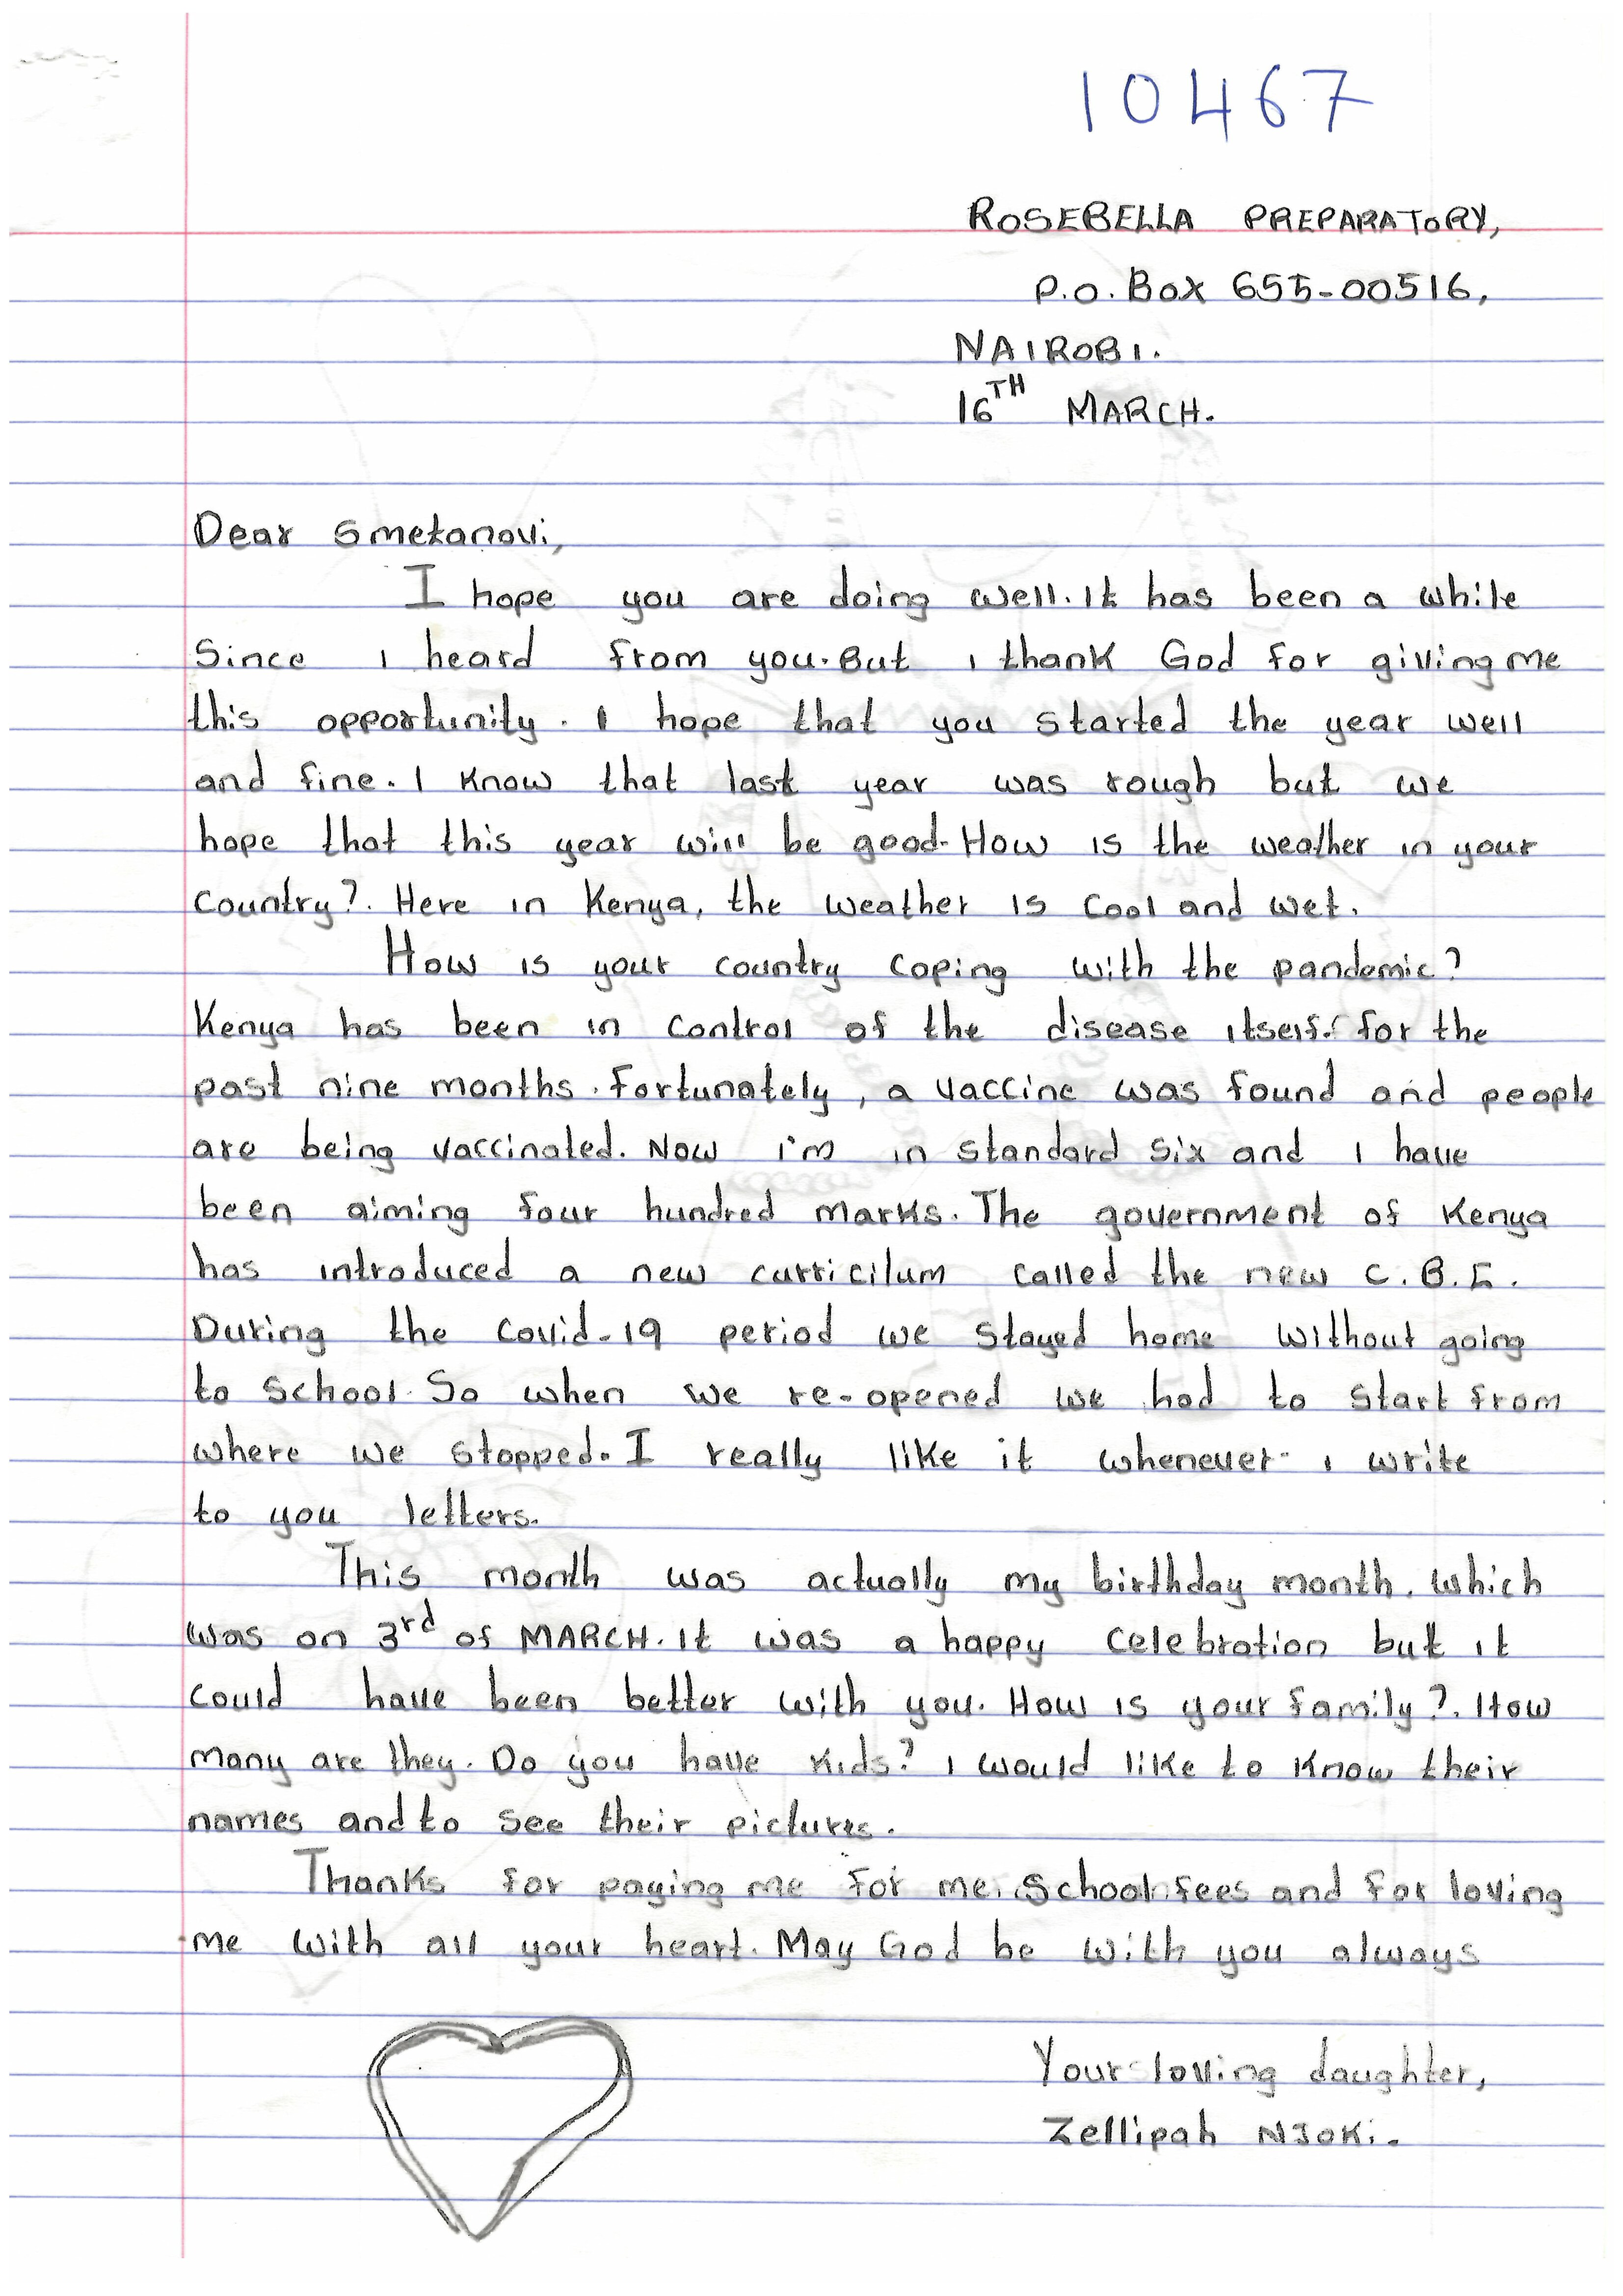 10467
ROSEBELLA PREPARATORY,
P.O. BOX 655-00516,
NAIROBI.
16TH MARCH.
Dear Smetanovi,
I hope you are doing well. It has been a while
Since I heard from you. But I thank God for giving me
this opportunity. I hope that you started the year well
and fine. I know that last year was rough but we
hope that this year will be good. How is the weather in your
country?. Here in Kenya, the weather is cool and wet.
How is your country coping with the pandemic?
Kenya has been in control of the disease itself for the
past nine months. Fortunately, a vaccine was found and people
are being vaccinated. Now I'm in standard six and I have
been aiming four hundred marks. The government of Kenya
has introduced a new curricilum called the new C.B.E.
During the Covid-19 period we stayed home without going
to school. So when we re-opened we had to start from
where we stopped. I really like it whenever I write
to you letters.
This month was actually my birthday month. Which
was on 3rd of MARCH. It was a happy celebration but it
could have been better with you. How is your family?. How
many are they. Do you have kids? I would like to know their
names and to see their pictures.
Thanks for paying me for me. School fees and for loving
me with all your heart. May God be with you always
Your loving daughter,
Zellipah NJOKi.